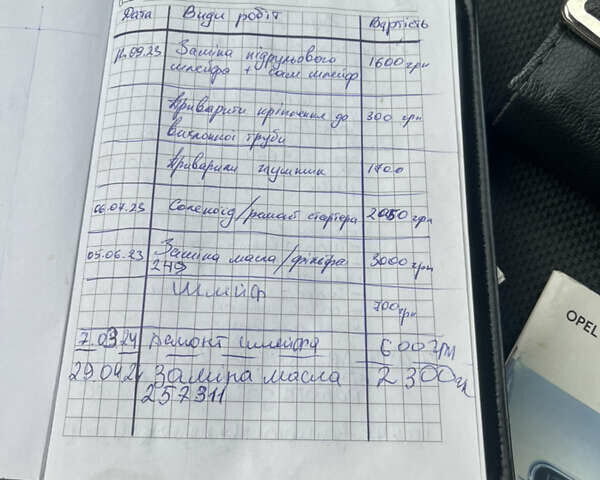 Дата Види робіт Вартість
12.09.23 Заміна підрульового 1600 грн
шлейфа + сам шлейф
Приварити кріплення до 300 грн
вихлопної труби
Приварили глушник 1700
06.04.23 Соленоїд/ремонт стартера 2050 грн
05.06.23 Заміна масла/фільтра 3000 грн
249
Шлейф
700 грн
7.03.24 Ремонт шлейфа 600 грн
29.04.24 Заміна масла 2300 гр
257311
OPEL